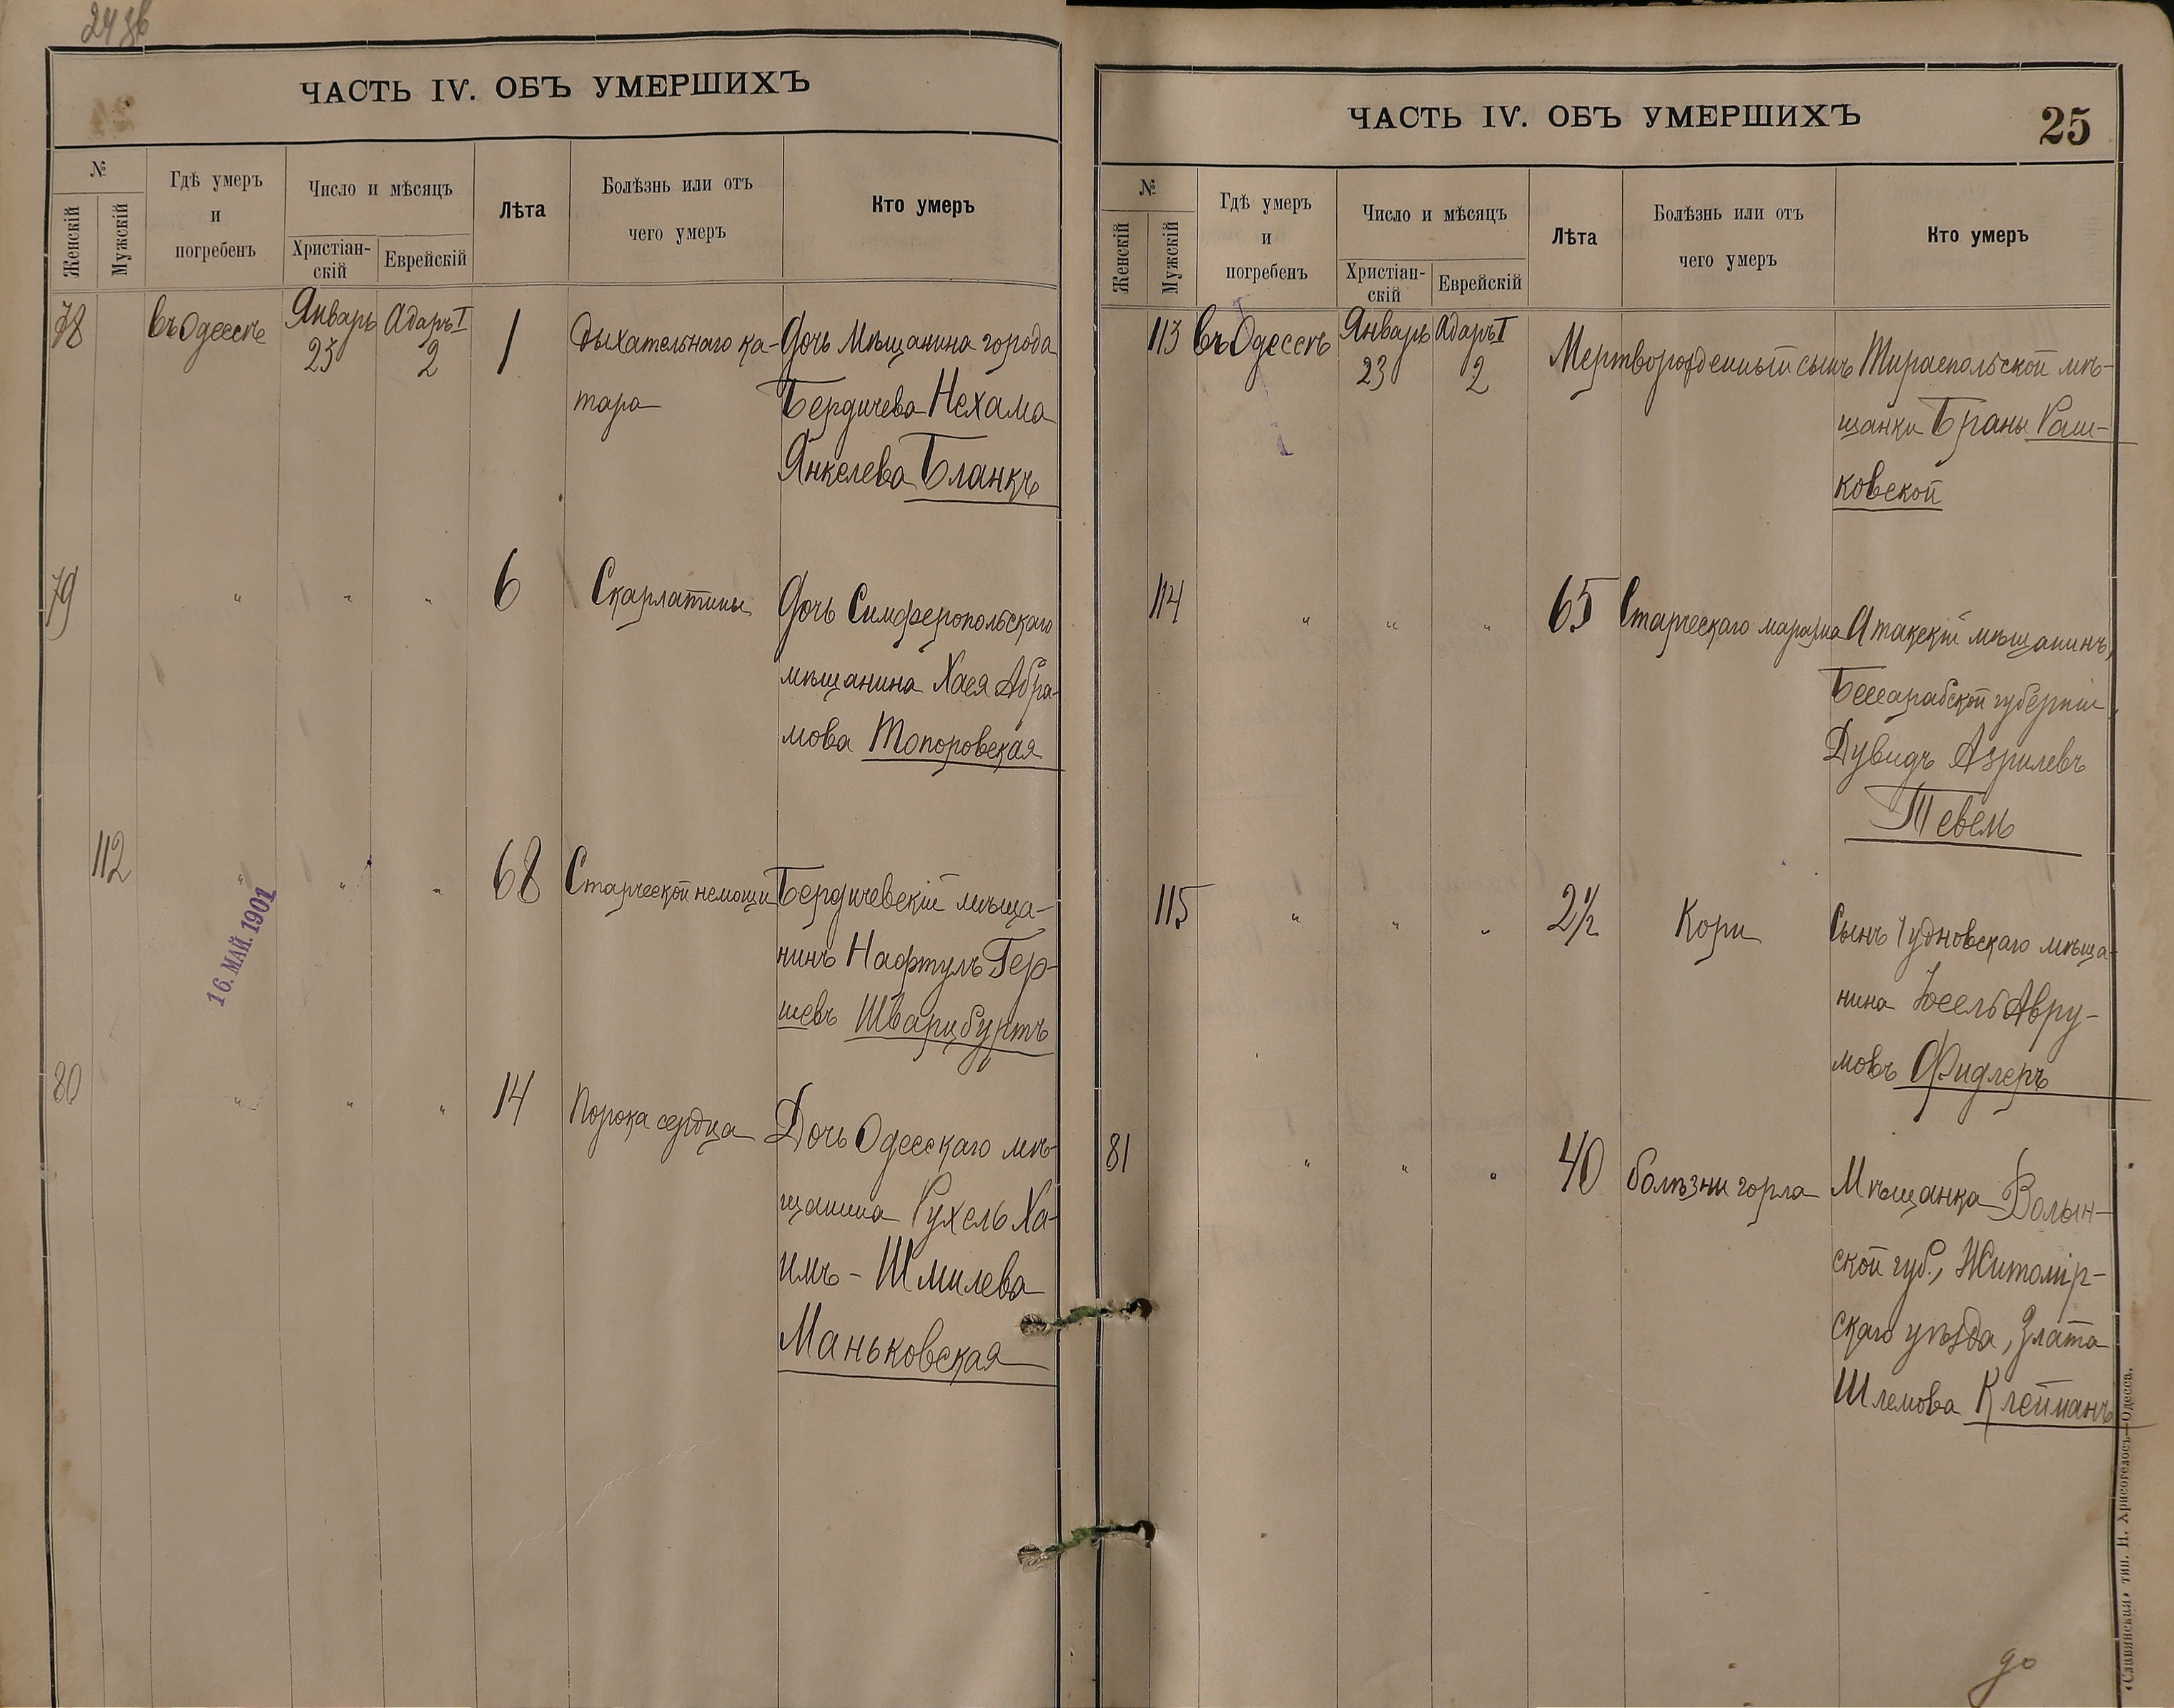 24 зв
ЧАСТЬ IV. ОБЪ УМЕРШИХЪ
№
Женскій
Мужскій
Гдѣ умеръ
и
погребенъ
Число и мѣсяцъ
Христіан-
скій
Еврейскій
Лѣта
Болѣзнь или отъ
чего умеръ
Кто умеръ
78 въ Одессѣ Январь 23 Адаръ I 2 1 Дыхательнаго ка- Дочь Мѣщанина города
тара Бердичева Нехама
Янкелева Бланкъ
79 " " " 6 Скарлатины Дочь Симферопольскаго
мѣщанина Хася Абра-
мова Топоровская
112 " " " 68 Старческой немощи Бердичевскій мѣща-
нинъ Нафтулъ Гер-
шевъ Шварцбуртъ
16. МАЙ. 1901
80 " " " 14 Порока сердца Дочь Одесскаго мѣ-
щанина Рухель Ха-
имъ-Шмилева
Маньковская
ЧАСТЬ IV. ОБЪ УМЕРШИХЪ
25
№
Женскій
Мужскій
Гдѣ умеръ
и
погребенъ
Число и мѣсяцъ
Христіан-
скій
Еврейскій
Лѣта
Болѣзнь или отъ
чего умеръ
Кто умеръ
113 въ Одессѣ Январь 23 Адаръ I 2 Мертворожденный сынъ Тираспольской мѣ-
щанки Браны Раш-
ковской
114 " " " 65 Старческаго маразма Атакскій мѣщанинъ,
Бессарабской губерніи,
Дувидъ Азрилевъ
Тевель
115 " " " 2½ Кори Сынъ Чудновскаго мѣща-
нина Іосель Авру-
мовъ Фидлеръ
81 " " " 40 болѣзни горла Мѣщанка Волын-
ской губ., Житомір-
скаго уѣзда, Злата
Шлемова Клейманъ
«Славянская» тип. Н. Хрисогелосъ—Одесса.
до